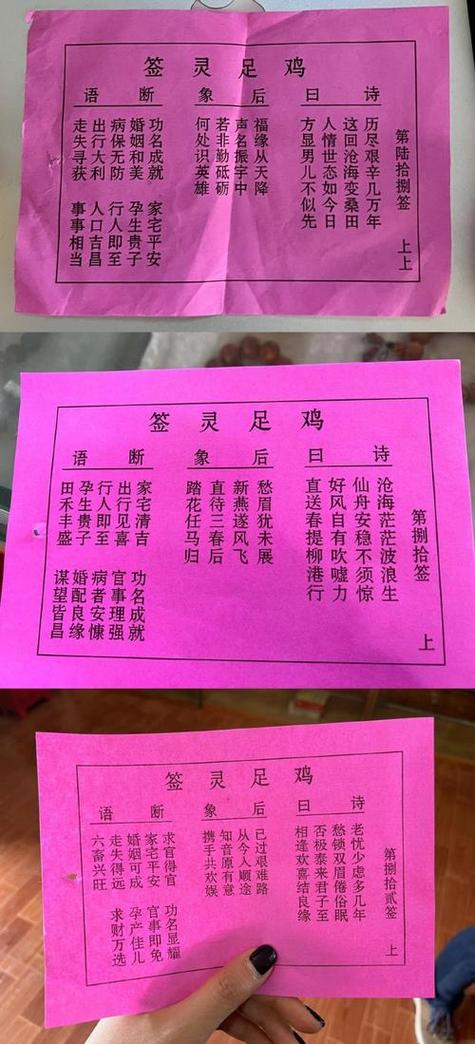 鸡足灵签
第陆拾捌签 上上
诗曰
历尽艰辛几万年
这回沧海变桑田
人情世态如今日
方显男儿不似先
后象
福缘从天降
声名振宇中
若非勤砥砺
何处识英雄
断语
功名成就 家宅平安
婚姻和美 孕生贵子
病保无防 行人即至
出行大利 人口吉昌
走失寻获 事事相当
鸡足灵签
第捌拾签 上
诗曰
沧海茫茫波浪生
仙舟安稳不须惊
好风自有吹嘘力
直送春提柳港行
后象
愁眉犹未展
新燕遂风飞
直待三春后
踏花任马归
断语
家宅清吉 功名成就
出行见喜 官事理强
行人即至 病者安慷
孕生贵子 婚配良缘
田禾丰盛 谋望皆昌
鸡足灵签
第捌拾贰签 上
诗曰
老忧少虑多几年
愁锁双眉倦俗眠
否极泰来君子至
相逢欢喜结良缘
后象
已过艰难路
从今人顺途
知音原有意
携手共欢娱
断语
求官得官 功名显耀
家宅平安 官事即免
婚姻可成 孕产佳儿
走失得远 求财万选
六畜兴旺